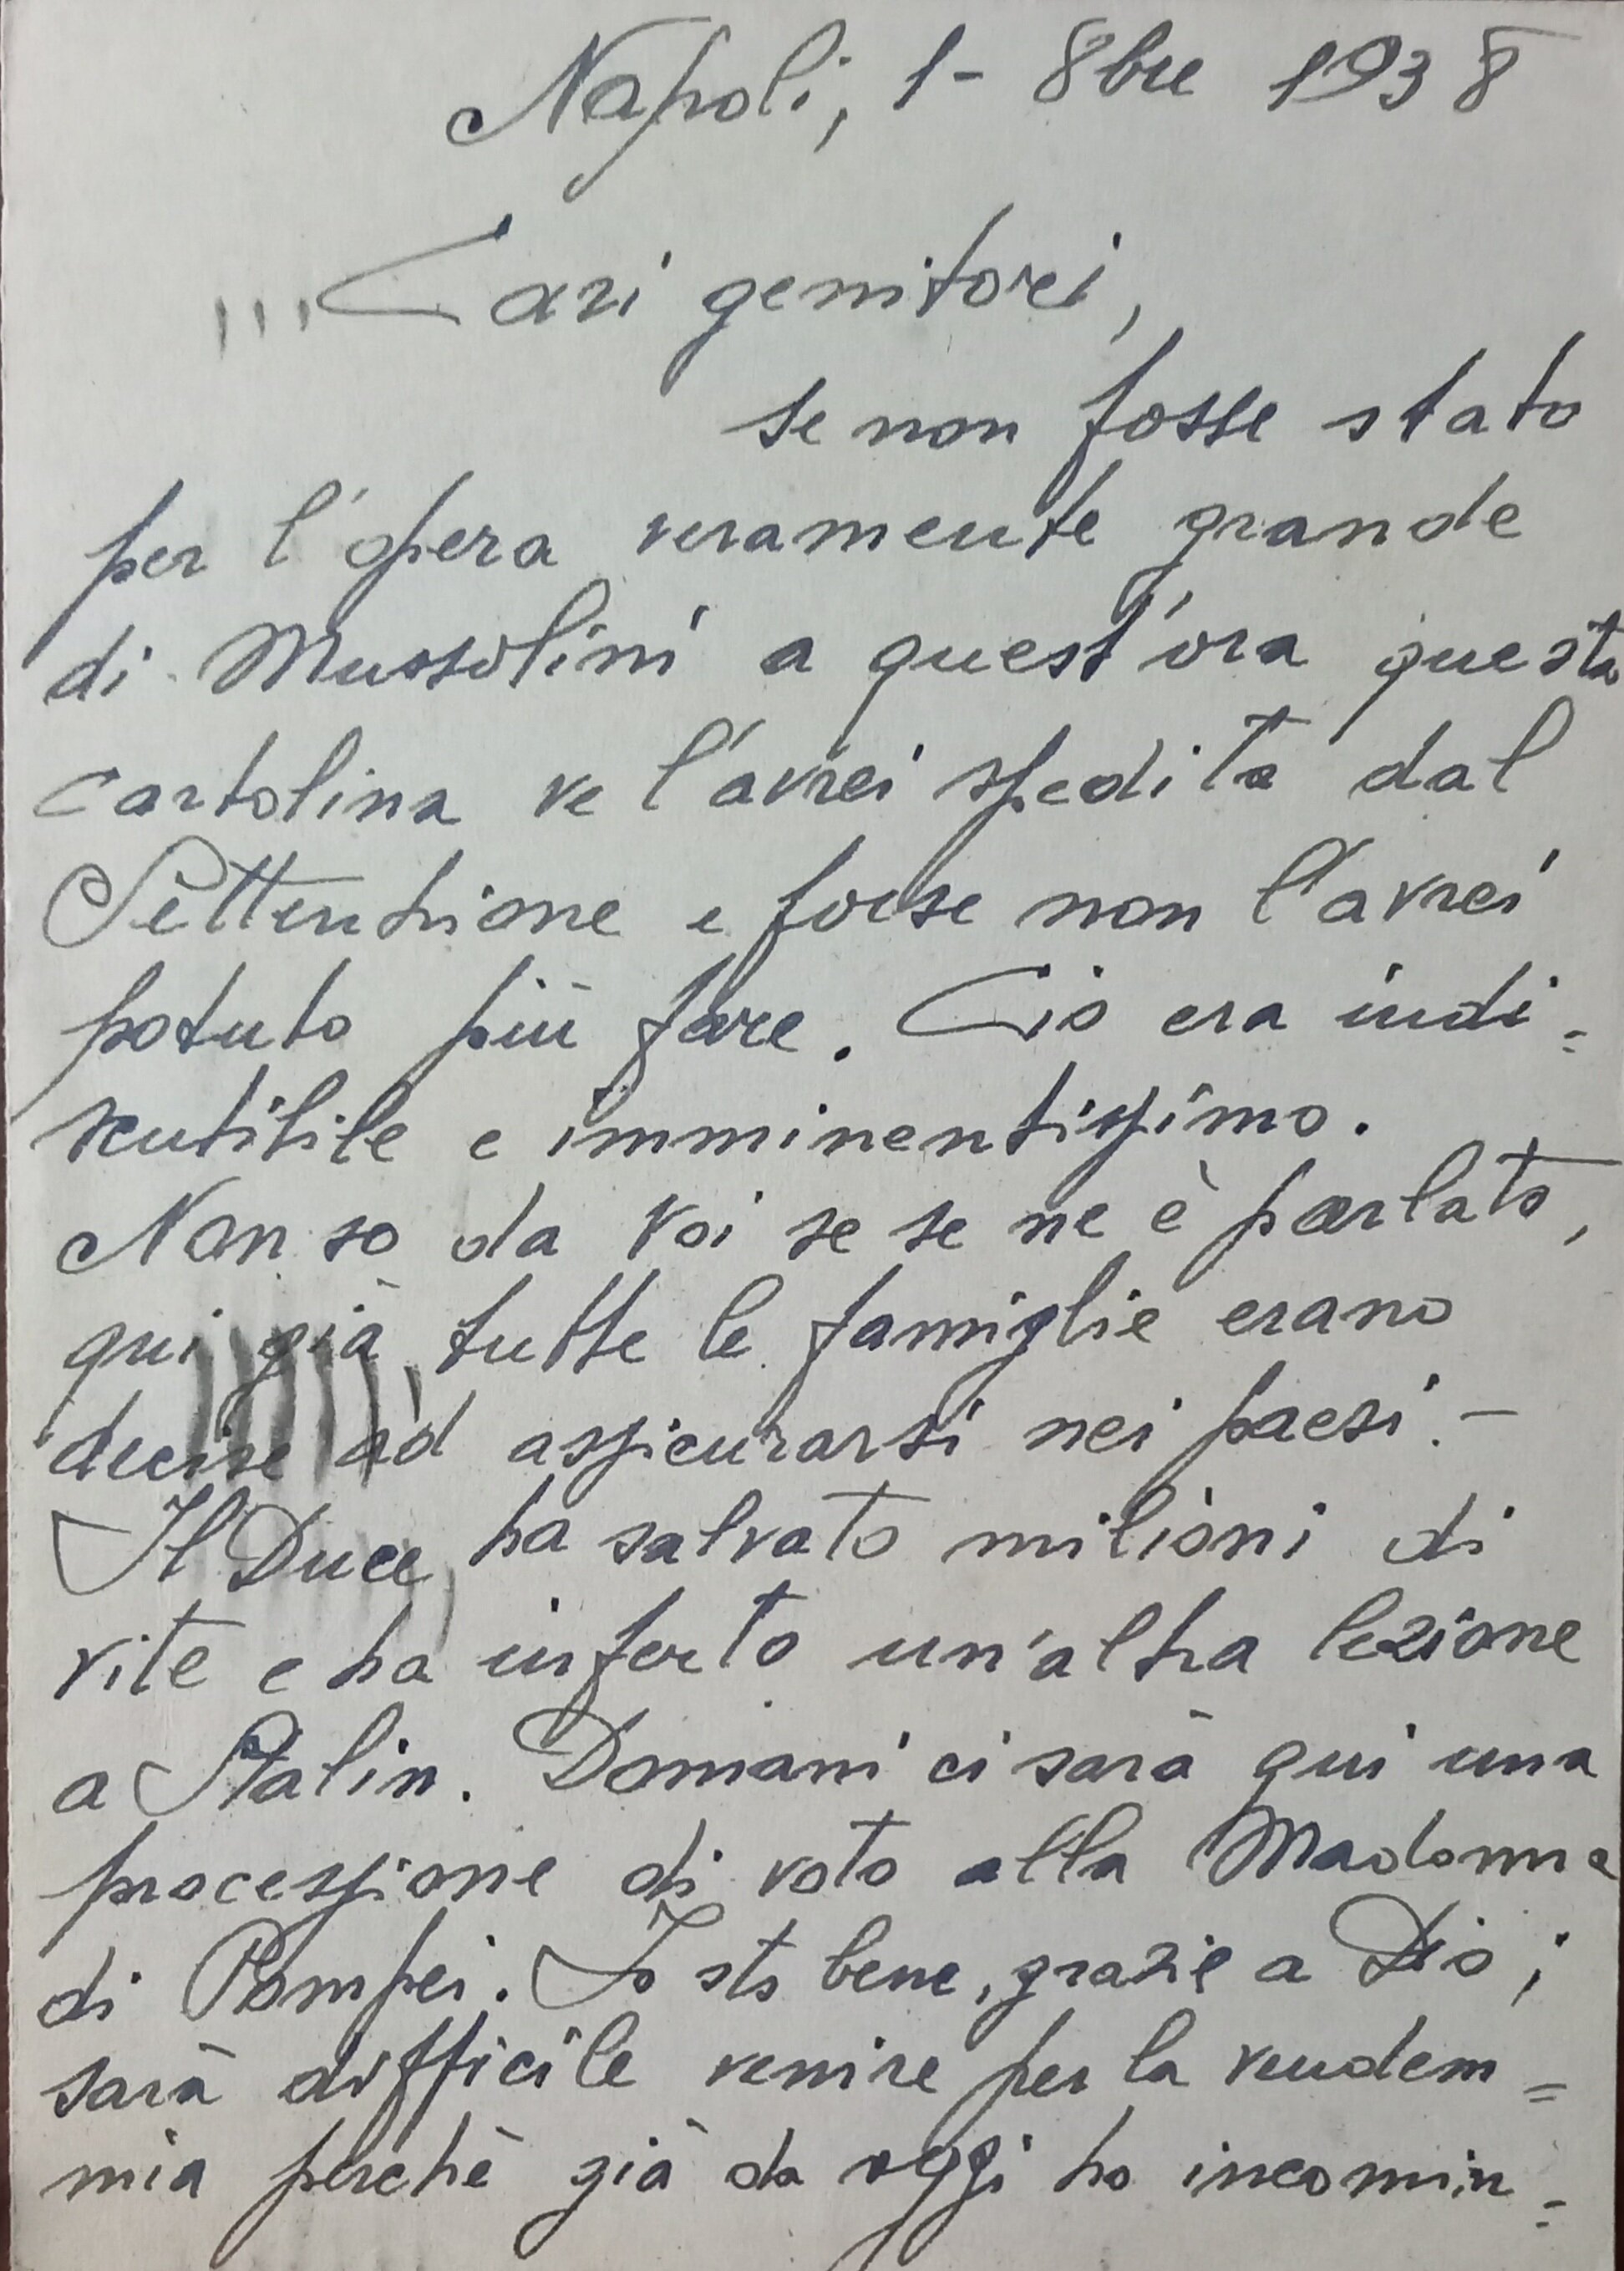 Napoli, 1- 8bre 1938
Cari genitori,
se non fosse stato
per l'opera veramente grande
di Mussolini a quest'ora questa
cartolina ve l'avrei spedita dal
Settentrione e forse non l'avrei
potuto più fare. Ciò era indi=
scutibile e imminentissimo.
Non so da voi se se ne è parlato,
qui già tutte le famiglie erano
decise ad assicurarsi nei paesi.-
Il Duce ha salvato milioni di
vite e ha inferto un'altra lezione
a Stalin. Domani ci sarà qui una
processione di voto alla Madonna
di Pompei. Io sto bene, grazie a Dio;
sarà difficile venire per la vendem=
mia perchè già da oggi ho incomin=